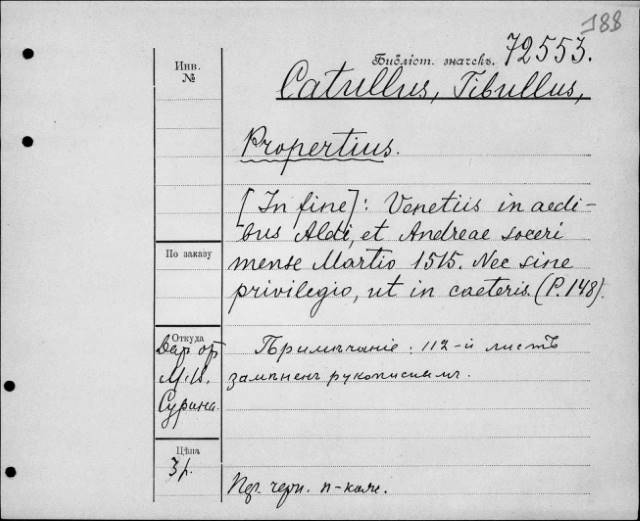 188
Библіот. значекъ. 72553.
Инв.
№
Catullus, Tibullus,
Propertius.
[In fine]: Venetiis in aedi-
bus Aldi, et Andreae soceri
mense Martio 1515. Nec sine
privilegio, ut in caeteris. (P. 148).
По заказу
Откуда
Даръ от
М.И.
Сурина.
Примѣчаніе: 112-й листъ
замѣненъ рукописнымъ.
Цѣна
3 р.
Пер. черн. п-кож.